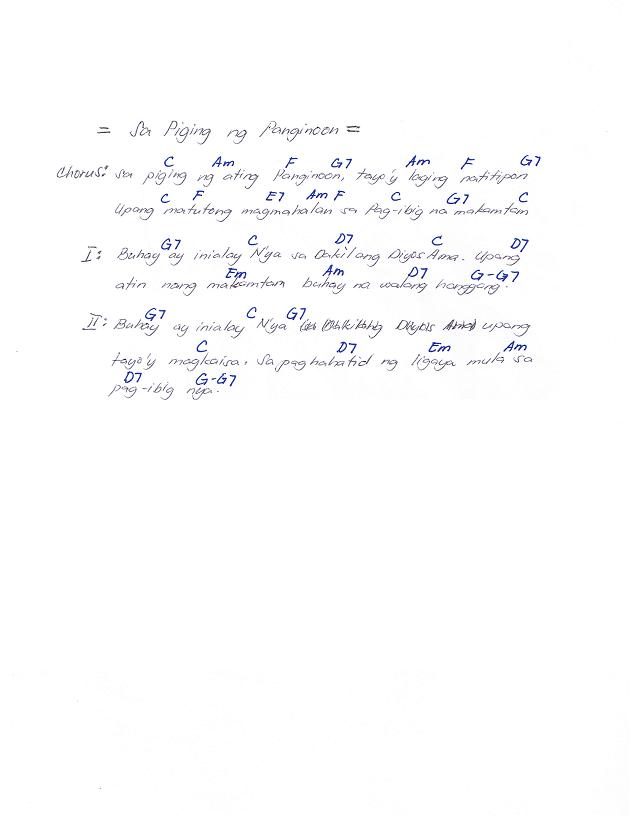 = Sa Piging ng Panginoon =
C Am F G7 Am F G7
Chorus: Sa piging ng ating Panginoon, tayo'y laging natitipon
C F E7 Am F C G7 C
Upang matutong magmahalan sa Pag-ibig na makamtam
G7 C D7 C D7
I: Buhay ay inialay N'ya sa Dakilang Diyos Ama. Upang
Em Am D7 G-G7
atin nang makamtam buhay na walang hanggang.
G7 C G7
II: Buhay ay inialay N'ya upang
C D7 Em Am
tayo'y magkaisa. Sa paghahatid ng ligaya mula sa
D7 G-G7
pag-ibig nya.